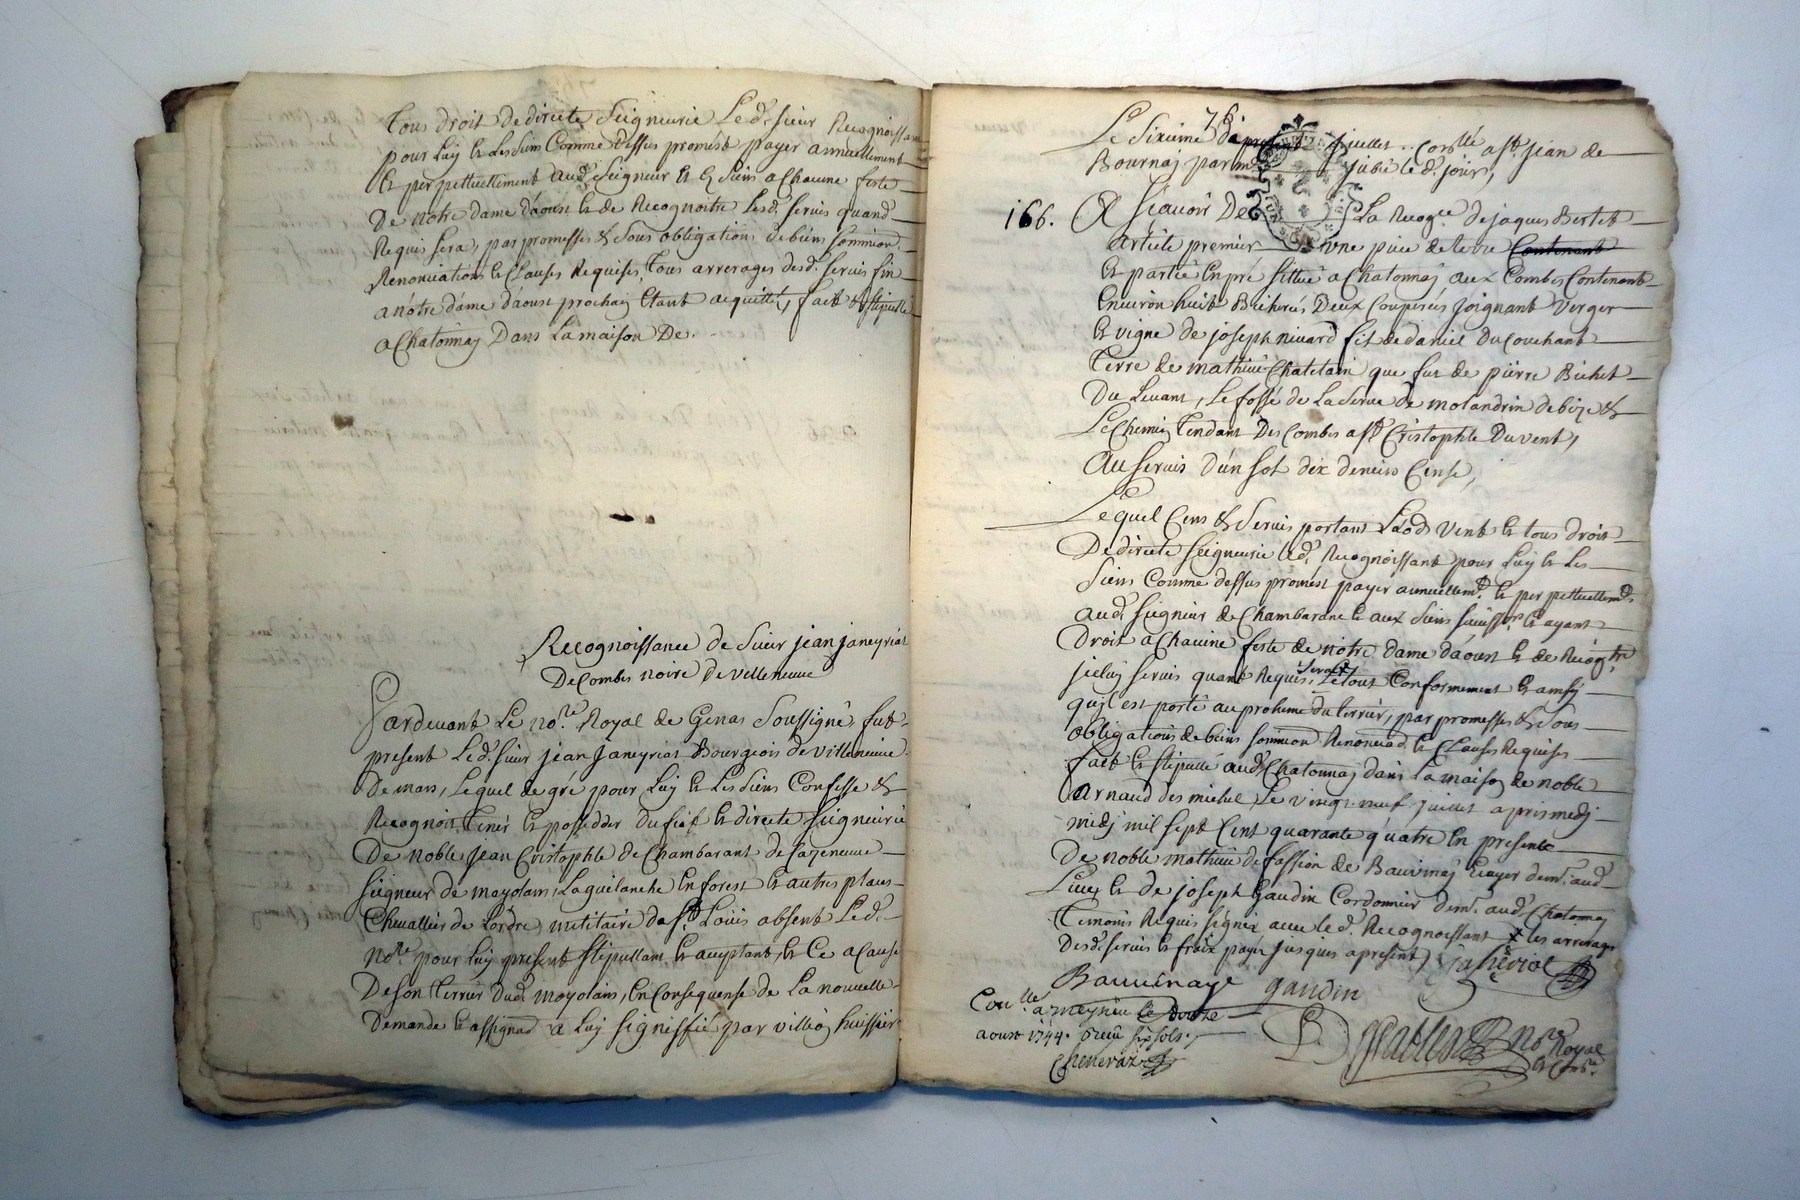 Tous droit de directe Seigneurie Le d. sieur Recognoissant
pour Luy et Les siens Comme dessus promest payer annuellement
et perpettuellement aud. Seigneur et es siens a Chacune feste
De notre dame daoust et de Recognoitre Lesd. servis quand
Requis sera, par promesses & sous obligations de biens sommion.
Renonciations et Clauses Requises, Tous arrerages desd. servis fin
a nôtre dame daoust prochain Etant acquitté, fait & stipullé
a Chatonnay Dans La maison De.
Recognoissance de Sieur jean janeyriat
De Combes noire de villeneuve
Pardevant Le no.re Royal de Genas Soussigné fut
present Led. sieur jean janeyriat Bourgeois de villeneuve
De mars, Lequel de gré pour Luy et Les siens Confesse &
Recognoit Tenir et posseder du fief et directe seigneurie
De noble jean Cristophle de Chambarant de Cazeneuve
seigneur de moyolans, La guilanche En forest et autres places
Chevallier de Lordre militaire de st. Louis absent Led.
no.re pour Luy present stipullant et acceptant, et Ce a Cause
De son Terrier dud. moyolans, En Consequense de La nouvelle
Demande et assignad. a Luy signiffié par huissier
78
Le Sixieme juillet .. a st. jean de
Bournay par led. jour,
166. A sçavoir De La Recog.ce de jaques Bertet
article premier une piece de terre Contenant
et partie En pré sittué a Chatonnay aux Combes Contenant
Environ huit Bicherés Deux Couperées joignant Verger
et vigne de joseph nivard fils de daniel Du Couchant
Terre de mathieu Chatelain que fut de pierre Bichet
Du Levant, Le fossé de La Serve de molandrin de bize &
Le Chemin Tendant Des Combes a st. Cristophle Du vent,
Au servis d'un sol dix deniers Cense,
Lequel Cens & servis portant Laods Vent et tous droit
De directe seigneurie led. Recognoissant pour Luy et Les
siens Comme dessus promest payer annuellem.t et perpettuellem.t
aud. seigneur de Chambarant et aux siens et ayant
Droit a Chacune feste de nôtre dame daoust et de Recog.tre
jceluy servis quant Requis, sera Le tout Conformement et ainsy
quil est porté au proheme du terrier, par promesses & sous
obligations de biens sommion Renonciad. et Clauses Requises
fait et stipullé aud. Chatonnay dans La maison de noble
Arnaud des michel, Le vingt neuf juillet apris medj
medj mil sept Cent quarante quatre En presence
De noble mathieu de fassion de Bauvinay Ecuyer dem.t aud.
Lieu et de joseph Gaudin Cordonnier dem.t aud. Chatonnay
Temoins Requis signés avec le d. Recognoissant et les arrerages
Desd. servis et fraix payés jusques a present
Bauvinaye gaudin
a meyrieu le douze
aoust 1744. Receu six sols.
no.re Royal